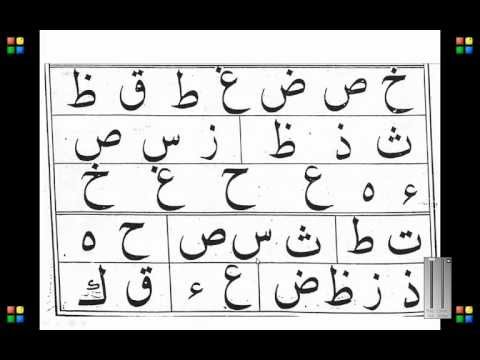 خ ص ض غ ط ق ظ
ث ذ ظ ز س ص
ء ه ع ح غ خ
ت ط ث س ص ح ه
ذ ز ظ ض ع ء ق ك